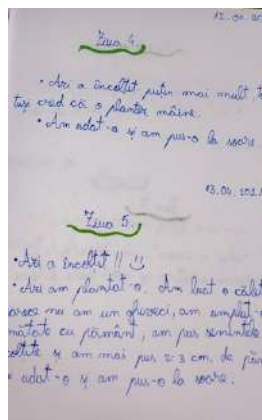 12.04.20
Ziua 4.
• Azi a încolțit puțin mai mult, t
tuși cred că o plantez mâine.
• Am udat-o și am pus-o la soare
13.04.202
Ziua 5.
• Azi a încolțit !! :)
• Azi am plantat-o. Am luat o căle
oarece nu am un ghiveci, am umplut-
mătate cu pământ, am pus semințele
colțite și am mai pus 2-3 cm. de pă
udat-o și am pus-o la soare.